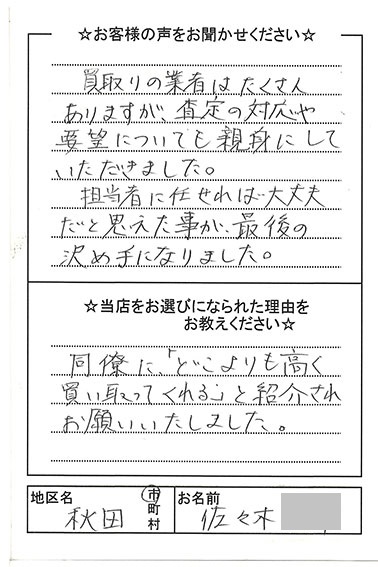 ☆お客様の声をお聞かせください☆
買取りの業者はたくさん
ありますが、査定の対応や
要望についても親身にして
いただきました。
担当者に任せれば大丈夫
だと思えた事が、最後の
決め手になりました。
☆当店をお選びになられた理由を
お教えください☆
同僚に、「どこよりも高く
買い取ってくれる」と紹介され
お願いいたしました。
地区名
秋田
市
町
村
お名前
佐々木